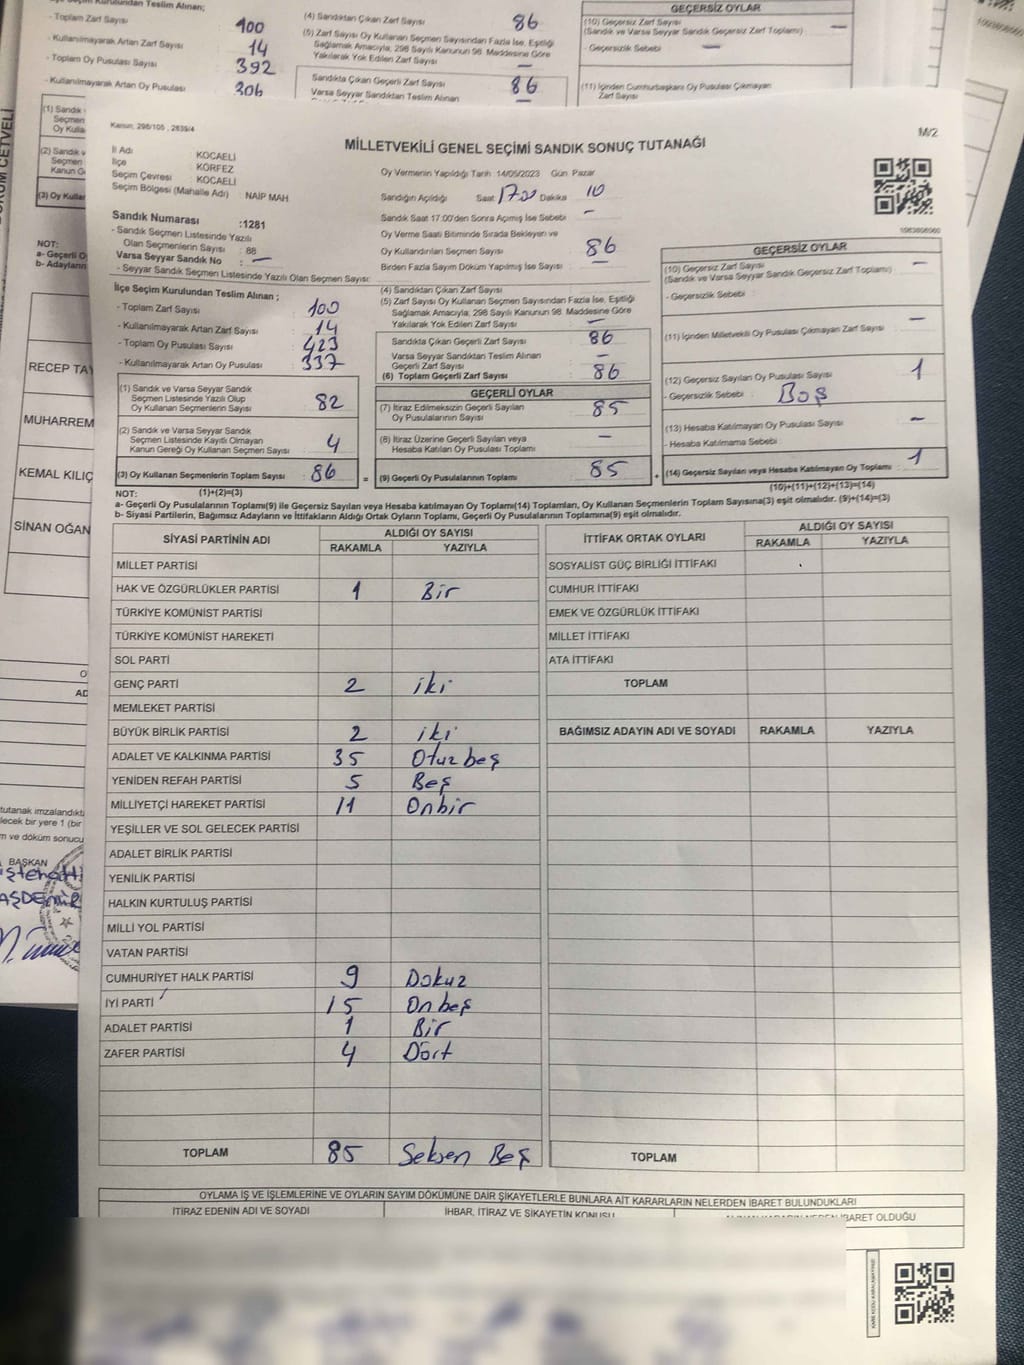 Teslim Alınan;
- Toplam Zarf Sayısı 100
- Kullanılmayarak Artan Zarf Sayısı 14
- Toplam Oy Pusulası Sayısı 392
- Kullanılmayarak Artan Oy Pusulası 306
(4) Sandıktan Çıkan Zarf Sayısı 86
(5) Zarf Sayısı Oy Kullanan Seçmen Sayısından Fazla İse, Eşitliği
Sağlamak Amacıyla; 298 Sayılı Kanunun 98. Maddesine Göre
Yakılarak Yok Edilen Zarf Sayısı —
Sandıkta Çıkan Geçerli Zarf Sayısı 86
Varsa Seyyar Sandıktan Teslim Alınan —
GEÇERSİZ OYLAR
(10) Geçersiz Zarf Sayısı
(Sandık ve Varsa Seyyar Sandık Geçersiz Zarf Toplamı) —
- Geçersizlik Sebebi —
(11) İçinden Cumhurbaşkanı Oy Pusulası Çıkmayan
Zarf Sayısı
(1) Sandık
Seçmen
Oy Kulla
(2) Sandık v
Seçmen
Kanun G
(3) Oy Kullan
NOT:
a- Geçerli O
b- Adayların
RECEP TA
MUHARREM
KEMAL KILIÇ
SİNAN OĞAN
BAŞKAN
Kanun; 298/105 , 2839/4
M/2
MİLLETVEKİLİ GENEL SEÇİMİ SANDIK SONUÇ TUTANAĞI
İl Adı KOCAELİ
İlçe KÖRFEZ
Seçim Çevresi KOCAELİ
Seçim Bölgesi (Mahalle Adı) NAİP MAH
Sandık Numarası :1281
- Sandık Seçmen Listesinde Yazılı
Olan Seçmenlerin Sayısı : 88
Varsa Seyyar Sandık No : —
- Seyyar Sandık Seçmen Listesinde Yazılı Olan Seçmen Sayısı:
Oy Vermenin Yapıldığı Tarih: 14/05/2023 Gün: Pazar
Sandığın Açıldığı Saat 17:00 Dakika 10
Sandık Saat 17:00'den Sonra Açılmış İse Sebebi —
Oy Verme Saati Bitiminde Sırada Bekleyen ve
Oy Kullandırılan Seçmen Sayısı 86
Birden Fazla Sayım Döküm Yapılmış İse Sayısı —
İlçe Seçim Kurulundan Teslim Alınan ;
- Toplam Zarf Sayısı 100
- Kullanılmayarak Artan Zarf Sayısı 14
- Toplam Oy Pusulası Sayısı 423
- Kullanılmayarak Artan Oy Pusulası 337
(1) Sandık ve Varsa Seyyar Sandık
Seçmen Listesinde Yazılı Olup
Oy Kullanan Seçmenlerin Sayısı 82
(2) Sandık ve Varsa Seyyar Sandık
Seçmen Listesinde Kayıtlı Olmayan
Kanun Gereği Oy Kullanan Seçmen Sayısı 4
(3) Oy Kullanan Seçmenlerin Toplam Sayısı 86
(1)+(2)=(3)
(4) Sandıktan Çıkan Zarf Sayısı
(5) Zarf Sayısı Oy Kullanan Seçmen Sayısından Fazla İse, Eşitliği
Sağlamak Amacıyla; 298 Sayılı Kanunun 98. Maddesine Göre
Yakılarak Yok Edilen Zarf Sayısı —
Sandıkta Çıkan Geçerli Zarf Sayısı 86
Varsa Seyyar Sandıktan Teslim Alınan
Geçerli Zarf Sayısı —
(6) Toplam Geçerli Zarf Sayısı 86
GEÇERLİ OYLAR
(7) İtiraz Edilmeksizin Geçerli Sayılan
Oy Pusulalarının Sayısı 85
(8) İtiraz Üzerine Geçerli Sayılan veya
Hesaba Katılan Oy Pusulası Toplamı —
= (9) Geçerli Oy Pusulalarının Toplamı 85 +
GEÇERSİZ OYLAR
(10) Geçersiz Zarf Sayısı —
(Sandık ve Varsa Seyyar Sandık Geçersiz Zarf Toplamı)
- Geçersizlik Sebebi
(11) İçinden Milletvekili Oy Pusulası Çıkmayan Zarf Sayısı —
(12) Geçersiz Sayılan Oy Pusulası Sayısı 1
- Geçersizlik Sebebi Boş
(13) Hesaba Katılmayan Oy Pusulası Sayısı —
- Hesaba Katılmama Sebebi
(14) Geçersiz Sayılan veya Hesaba Katılmayan Oy Toplamı 1
(10)+(11)+(12)+(13)=(14)
NOT:
a- Geçerli Oy Pusulalarının Toplamı(9) ile Geçersiz Sayılan veya Hesaba katılmayan Oy Toplamı(14) Toplamları, Oy Kullanan Seçmenlerin Toplam Sayısına(3) eşit olmalıdır. (9)+(14)=(3)
b- Siyasi Partilerin, Bağımsız Adayların ve İttifakların Aldığı Ortak Oyların Toplamı, Geçerli Oy Pusulalarının Toplamına(9) eşit olmalıdır.
SİYASİ PARTİNİN ADI ALDIĞI OY SAYISI
RAKAMLA YAZIYLA
MİLLET PARTİSİ
HAK VE ÖZGÜRLÜKLER PARTİSİ 1 Bir
TÜRKİYE KOMÜNİST PARTİSİ
TÜRKİYE KOMÜNİST HAREKETİ
SOL PARTİ
GENÇ PARTİ 2 iki
MEMLEKET PARTİSİ
BÜYÜK BİRLİK PARTİSİ 2 iki
ADALET VE KALKINMA PARTİSİ 35 Otuz beş
YENİDEN REFAH PARTİSİ 5 Beş
MİLLİYETÇİ HAREKET PARTİSİ 11 Onbir
YEŞİLLER VE SOL GELECEK PARTİSİ
ADALET BİRLİK PARTİSİ
YENİLİK PARTİSİ
HALKIN KURTULUŞ PARTİSİ
MİLLİ YOL PARTİSİ
VATAN PARTİSİ
CUMHURİYET HALK PARTİSİ 9 Dokuz
İYİ PARTİ 15 Onbeş
ADALET PARTİSİ 1 Bir
ZAFER PARTİSİ 4 Dört
TOPLAM 85 Seksen Beş
İTTİFAK ORTAK OYLARI ALDIĞI OY SAYISI
RAKAMLA YAZIYLA
SOSYALİST GÜÇ BİRLİĞİ İTTİFAKI
CUMHUR İTTİFAKI
EMEK VE ÖZGÜRLÜK İTTİFAKI
MİLLET İTTİFAKI
ATA İTTİFAKI
TOPLAM
BAĞIMSIZ ADAYIN ADI VE SOYADI RAKAMLA YAZIYLA
TOPLAM
OYLAMA İŞ VE İŞLEMLERİNE VE OYLARIN SAYIM DÖKÜMÜNE DAİR ŞİKAYETLERLE BUNLARA AİT KARARLARIN NELERDEN İBARET BULUNDUKLARI
İTİRAZ EDENİN ADI VE SOYADI İHBAR, İTİRAZ VE ŞİKAYETİN KONUSU
İBARET OLDUĞU